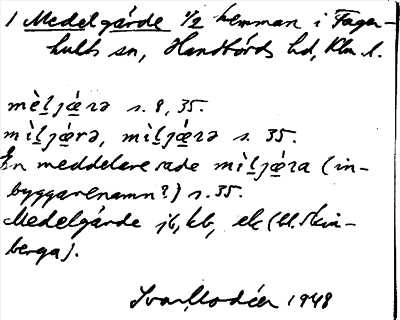 1 Medelgärde 1/2 hemman i Fager-
hults sn, Handbörds hd, Klm l.
mèl̲jæ̀rə s. 8, 35.
mìl̲jæ̀rə, mìl̲jæ̀rə s. 35.
En meddelare sade mìl̲jæ̀ra (in-
byggarenamn?) s. 35.
Medelgärde jb, kb, ek (bl. Skin-
berga).
Ivar Modéer 1948